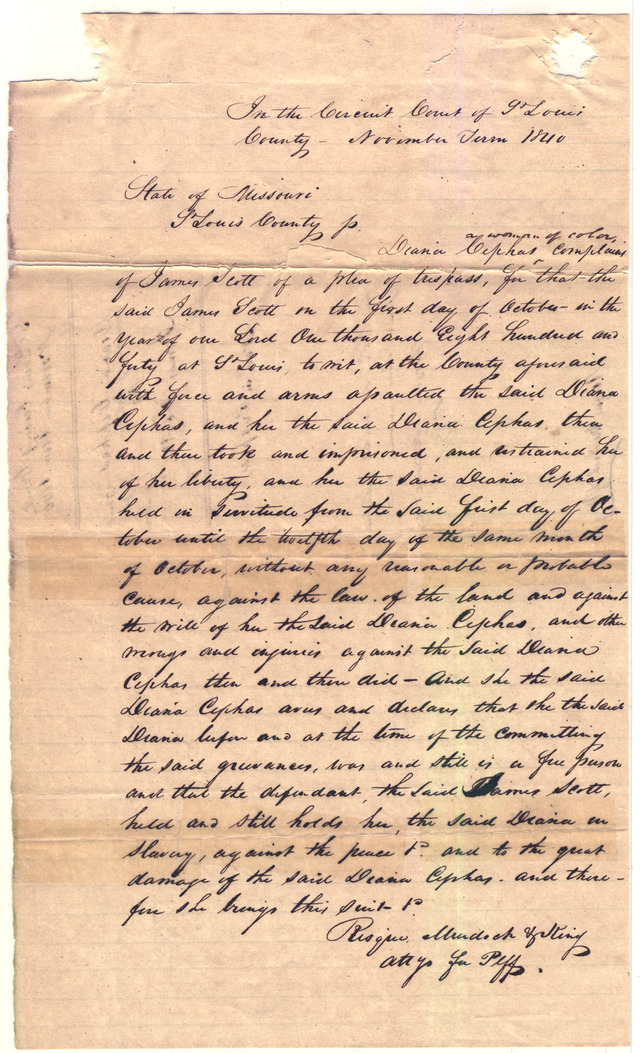 In the Circuit Court of St Louis
County - November Term 1840
State of Missouri
St Louis County ss.
a woman of color,
Diana Cephas ^ complains
of James Scott of a plea of trespass, for that the
said James Scott on the first day of October - in the
year of our Lord One thousand Eight hundred and
forty at St Louis, to wit, at the County aforesaid
with force and arms assaulted the said Diana
Cephas, and her the said Diana Cephas, then
and there took and imprisoned, and restrained her
of her liberty, and her the said Diana Cephas
held in Servitude from the said first day of Oc-
tober until the twelfth day of the same month
of October, without any reasonable or probable
cause, against the law of the land and against
the will of her the said Diana Cephas, and other
wrongs and injuries against the said Diana
Cephas then and there did - And she the said
Diana Cephas avers and declares that she the said
Diana before and at the time of the committing
the said grievances, was and still is a free person
and that the defendant, the said James Scott,
held and still holds her, the said Diana in
slavery, against the peace &c. and to the great
damage of the said Diana Cephas - and there-
fore she brings this suit &c.
Risque, Murdoch & King
attys for Plff.